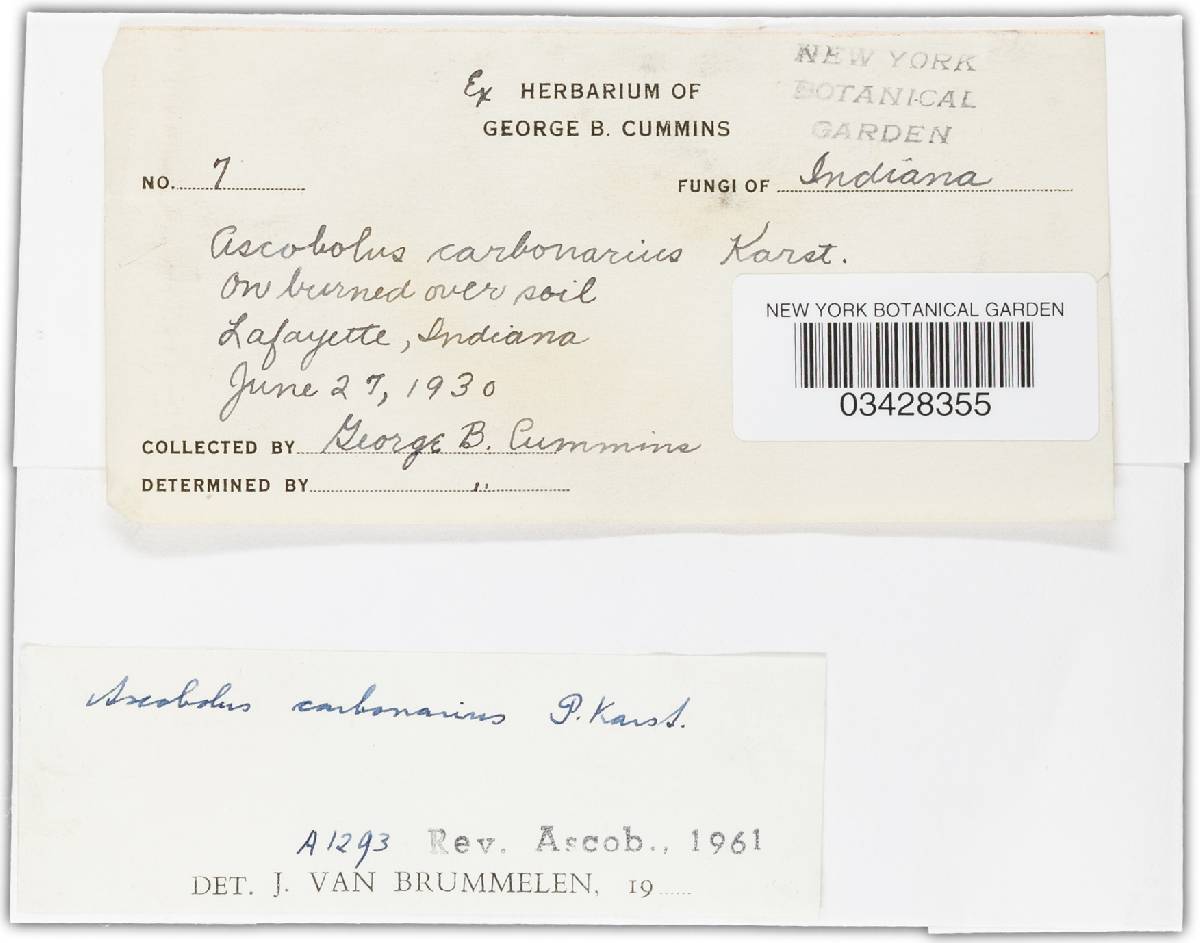 Ex HERBARIUM OF
GEORGE B. CUMMINS
NEW YORK
BOTANICAL
GARDEN
NO. 7
FUNGI OF Indiana
Ascobolus carbonarius Karst.
On burned over soil
Lafayette, Indiana
June 27, 1930
COLLECTED BY George B. Cummins
DETERMINED BY "
NEW YORK BOTANICAL GARDEN
03428355
Ascobolus carbonarius P. Karst.
A1293 Rev. Ascob., 1961
DET. J. VAN BRUMMELEN, 19